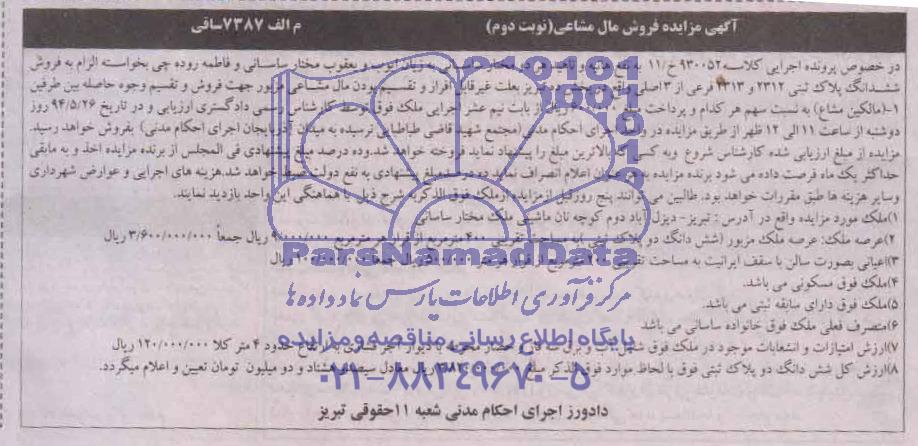 آگهی مزایده فروش مال مشاعی(نوبت دوم) م الف ۷۳۸۷ساقی
در خصوص پرونده اجرایی کلاسه ۹۳۰۰۵۲ ج/۱۱ به نفع و یعقوب مختار ساسانی و فاطمه روده چی بخواسته الزام به فروش
ششدانگ پلاک ثبتی ۲۳۱۲ و ۲۳۱۳ فرعی از ۳اصلی واقع در بخش تبریز بعلت غیرقابل افراز و تقسیم بودن مال مشاعی مزبور جهت فروش و تقسیم وجوه حاصله بین طرفین
(مالکین مشاع) به نسبت سهم هر کدام و پرداخت بابت نیم عشر اجرایی ملک فوق توسط کارشناس رسمی دادگستری ارزیابی و در تاریخ ۹۴/۵/۲۶ روز
دوشنبه از ساعت ۱۱ الی ۱۲ ظهر از طریق مزایده در اجرای احکام مدنی(مجتمع شهید قاضی طباطبایی نرسیده به میدان آذربایجان اجرای احکام مدنی) بفروش خواهد رسید.
مزایده از مبلغ ارزیابی شده کارشناس شروع وبه کسی که بالاترین مبلغ را پیشنهاد نماید فروخته خواهد شد.وده درصد مبلغ پیشنهادی فی المجلس از برنده مزایده اخذ و به مابقی
حداکثر یک ماه فرصت داده می شود برنده مزایده اعلام انصراف نماید ده درصد مبلغ پیشنهادی به نفع دولت ضبط خواهد شد.هزینه های اجرایی و عوارض شهرداری
وسایر هزینه ها طبق مقررات خواهد بود. طالبین می توانند پنج روز قبل از مزایده از ملک فوق الذکر به شرح ذیل با هماهنگی این واحد بازدید نمایند.
۱)ملک مورد مزایده واقع در آدرس : تبریز- دیزل آباد دوم کوچه نان ماشینی ملک مختار ساسانی
۲)عرصه ملک: عرصه ملک مزبور (شش دانگ دو پلاک ثبتی) به مساحت تقریبی ۴۰۰ مترمربع از قرار هر مترمربع ریال جمعاً ۳/۶۰۰/۰۰۰/۰۰۰ ریال
۳)اعیانی بصورت سالن با سقف ایرانیت به مساحت ریال
۴)ملک فوق مسکونی می باشد.
۵)ملک فوق دارای سابقه ثبتی می باشد.
۶)متصرف فعلی ملک فوق خانواده ساسانی می باشد
۷)ارزش امتیازات و انشعابات موجود در ملک فوق شامل آب و برق محوطه با دیوار آجر فشاری به ارتفاع حدود ۴ متر کلا ۱۲۰/۰۰۰/۰۰۰ ریال
۸)ارزش کل شش دانگ دو پلاک ثبتی فوق با لحاظ موارد فوق الذکر مبلغ ریال معادل سیصد و هشتاد و دو میلیون تومان تعیین و اعلام میگردد.
دادورز اجرای احکام مدنی شعبه ۱۱حقوقی تبریز
ParsNamadData
مرکز فرآوری اطلاعات پارس نماد داده ها
پایگاه اطلاع رسانی مناقصه و مزایده
۰۲۱-۸۸۳۴۹۶۷۰-۵